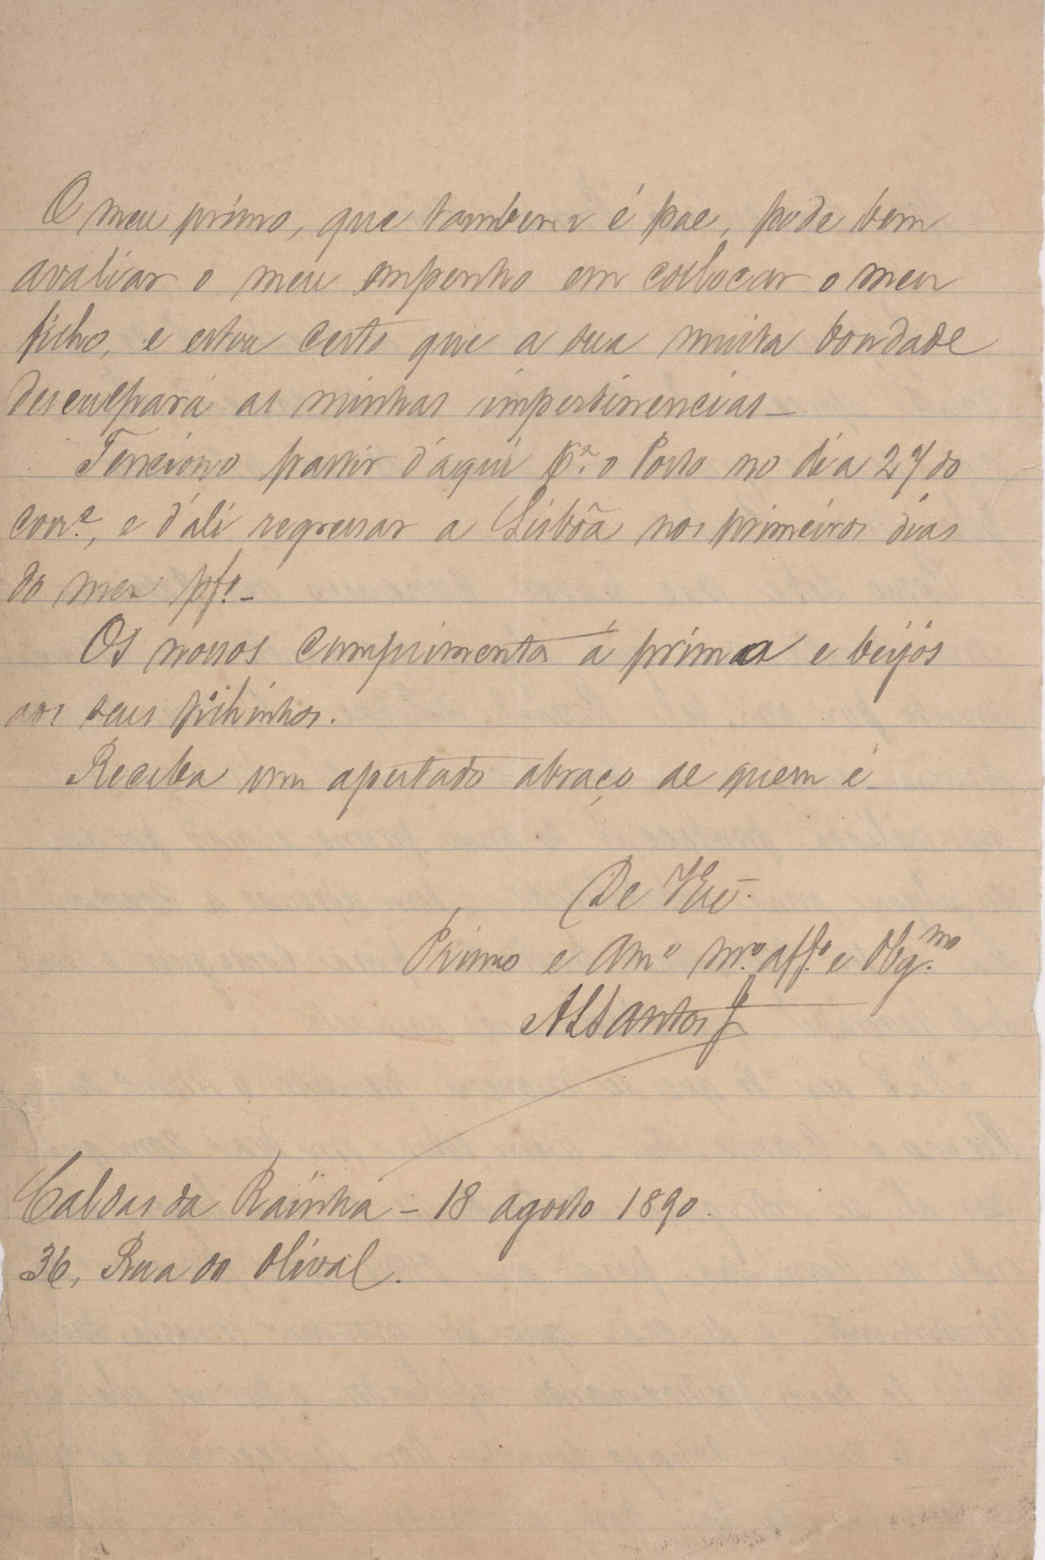 O meu primo, que tambem é pae, pode bem
avaliar o meu empenho em collocar o meu
filho, e estou certo que a sua muita bondade
desculpará as minhas impertinencias _
Tenciono partir d'aqui p.ª o Porto no dia 27 do
corr.e, e d'ali regressar a Lisbôa nos primeiros dias
do mez pf.º _
Os nossos cumprimentos á prima e beijos
aos seus filhinhos.
Receba um apertado abraço de quem é
De V.
Primo e Am.º m.º aff.º e Obg.mo
ALSantos Jr
Caldas da Rainha - 18 agosto 1890.
36, Rua do Olival.